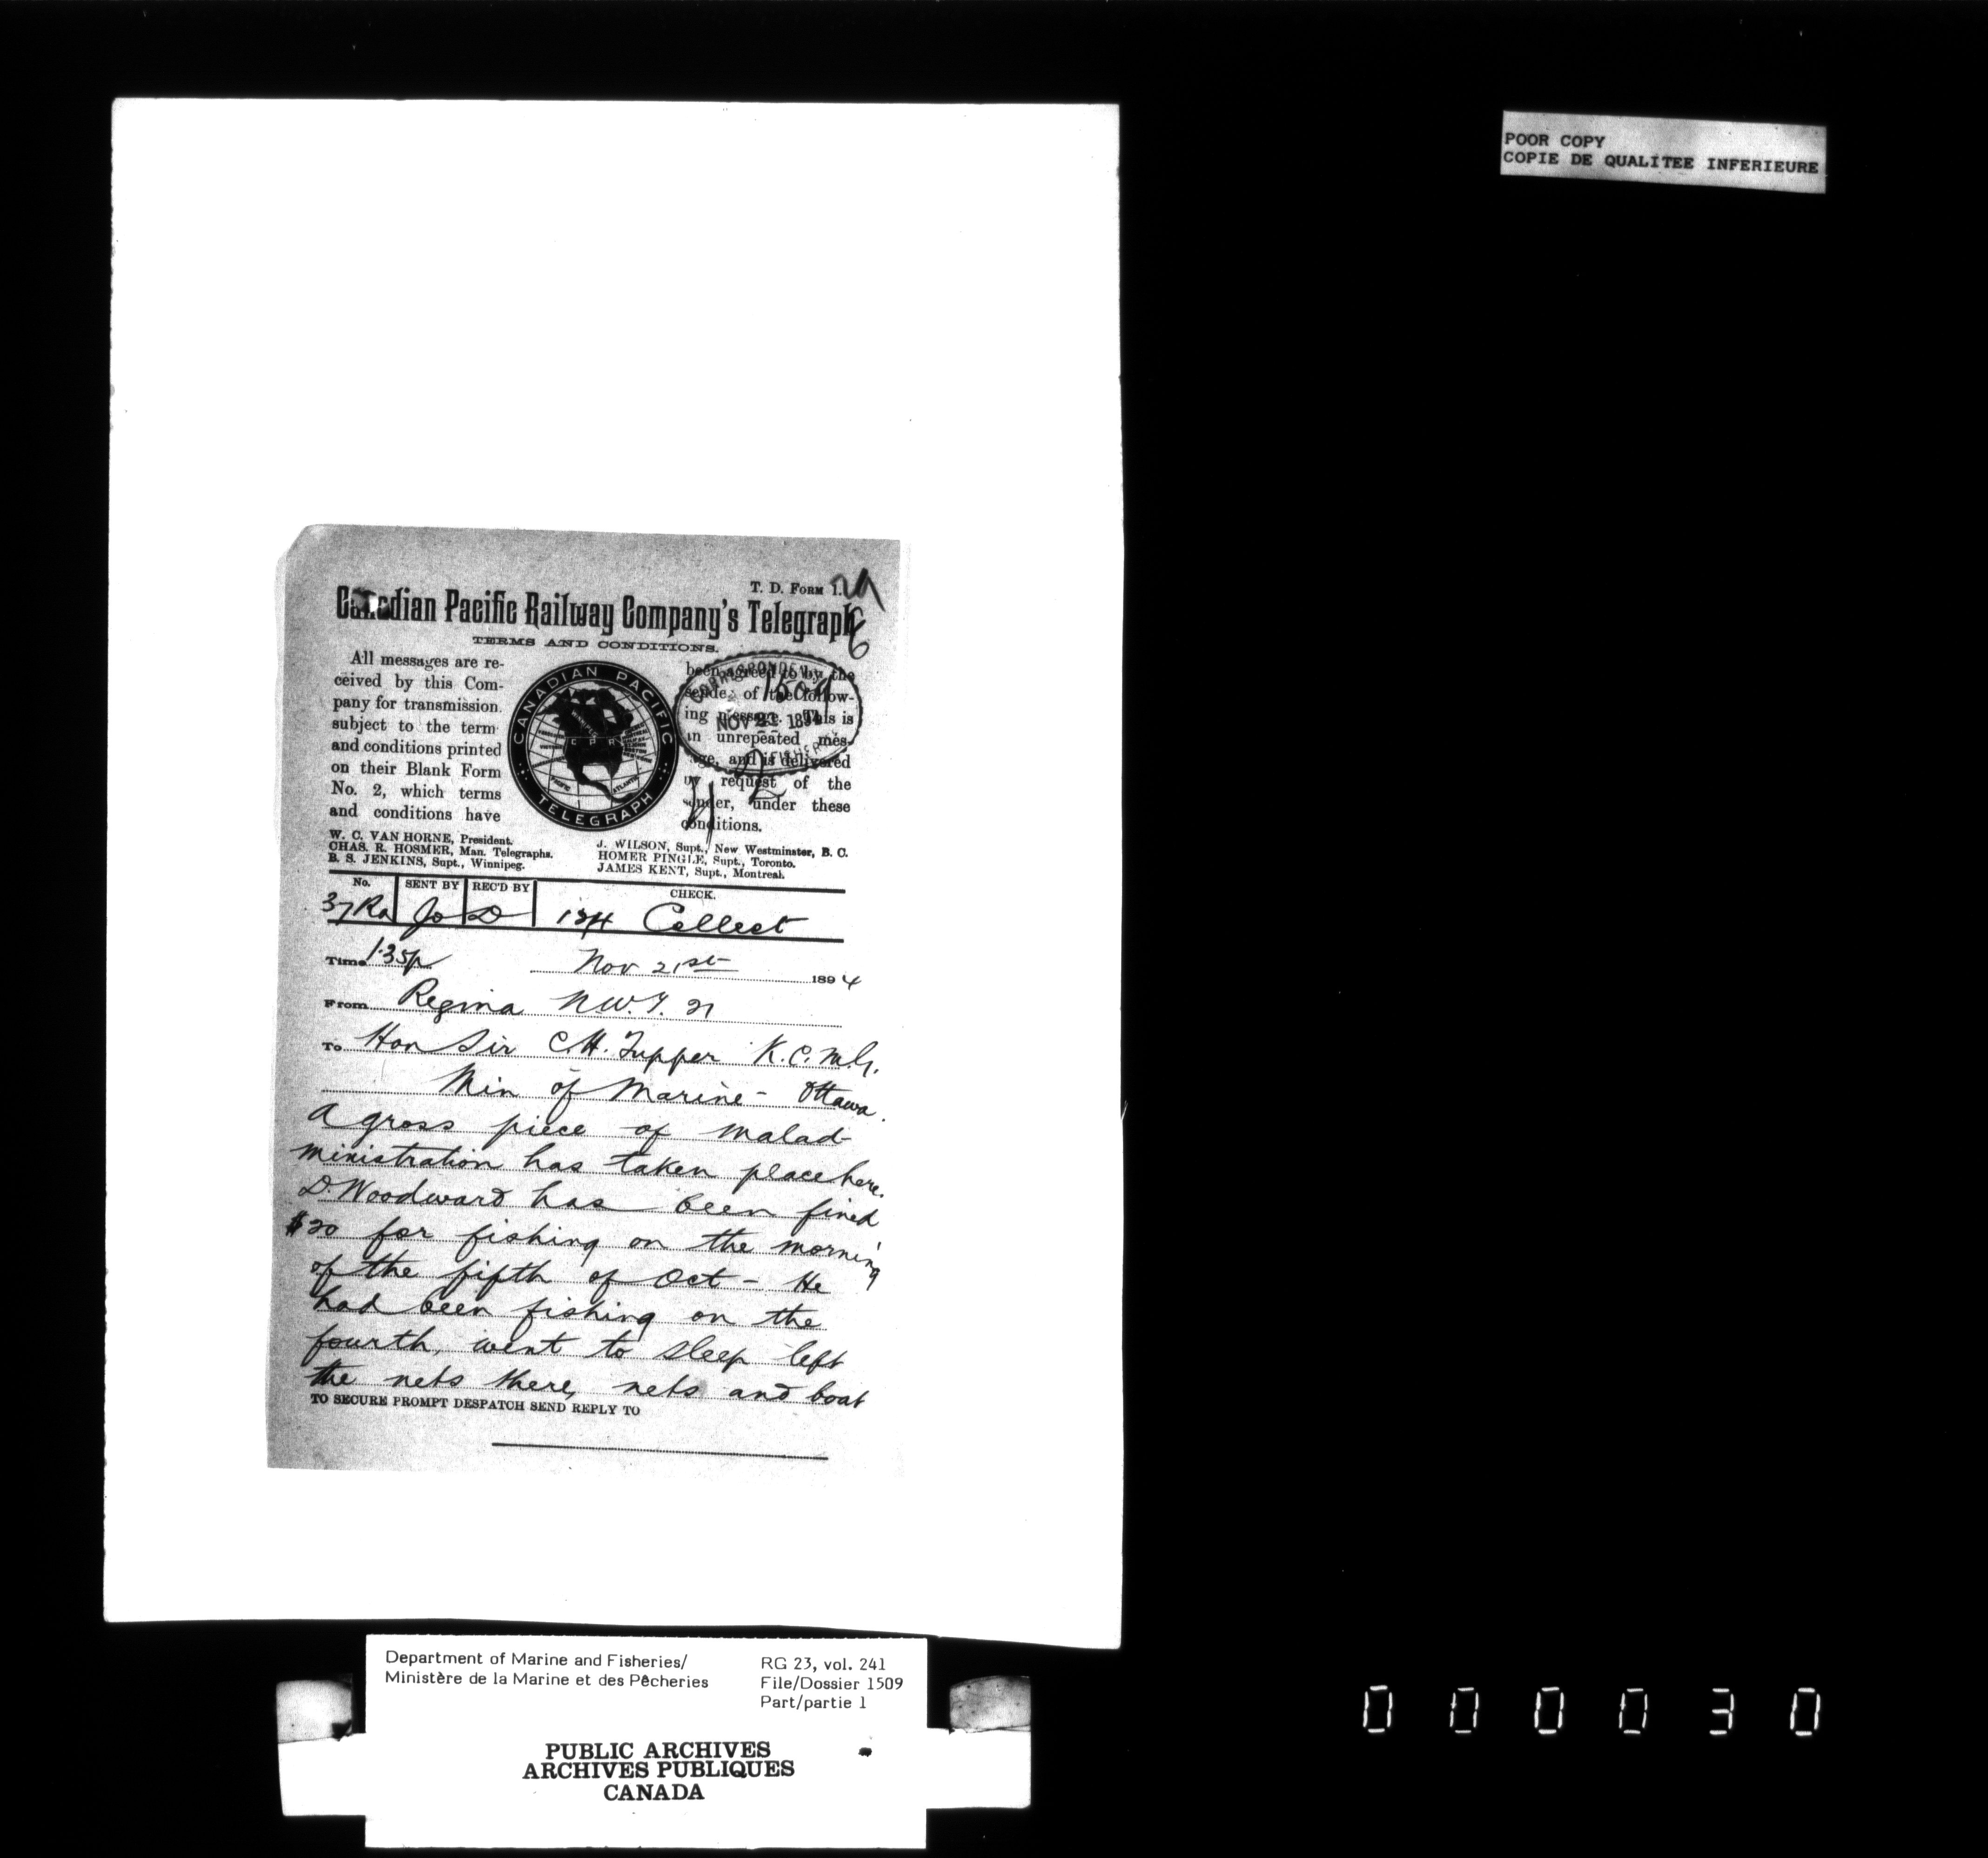 POOR COPY
COPIE DE QUALITEE INFERIEURE
T. D. FORM 1.
Canadian Pacific Railway Company's Telegraph
TERMS AND CONDITIONS.
All messages are re-
ceived by this Com-
pany for transmission
subject to the term
and conditions printed
on their Blank Form
No. 2, which terms
and conditions have
CANADIAN PACIFIC
C P R
TELEGRAPH
been agreed to by the
sender of the follow-
ing message. This is
an unrepeated mes-
sage, and is delivered
by request of the
sender, under these
conditions.
1509
NOV 21 1894
W. C. VAN HORNE, President.
CHAS. R. HOSMER, Man. Telegraphs.
B. S. JENKINS, Supt., Winnipeg.
J. WILSON, Supt., New Westminster, B. C.
HOMER PINGLE, Supt., Toronto.
JAMES KENT, Supt., Montreal.
No. SENT BY REC'D BY CHECK.
37 Ra Jo D 124 Collect
Time 1.35p Nov 21st 1894
From Regina N.W.T. 21
To Hon Sir C.H. Tupper K.C.M.G.
Min of Marine - Ottawa.
A gross piece of malad-
ministration has taken place here.
D. Woodward has been fined
$20 for fishing on the morning
of the fifth of Oct - He
had been fishing on the
fourth, went to sleep left
the nets there, nets and boat
TO SECURE PROMPT DESPATCH SEND REPLY TO
Department of Marine and Fisheries/
Ministère de la Marine et des Pêcheries
RG 23, vol. 241
File/Dossier 1509
Part/partie 1
PUBLIC ARCHIVES
ARCHIVES PUBLIQUES
CANADA
000030